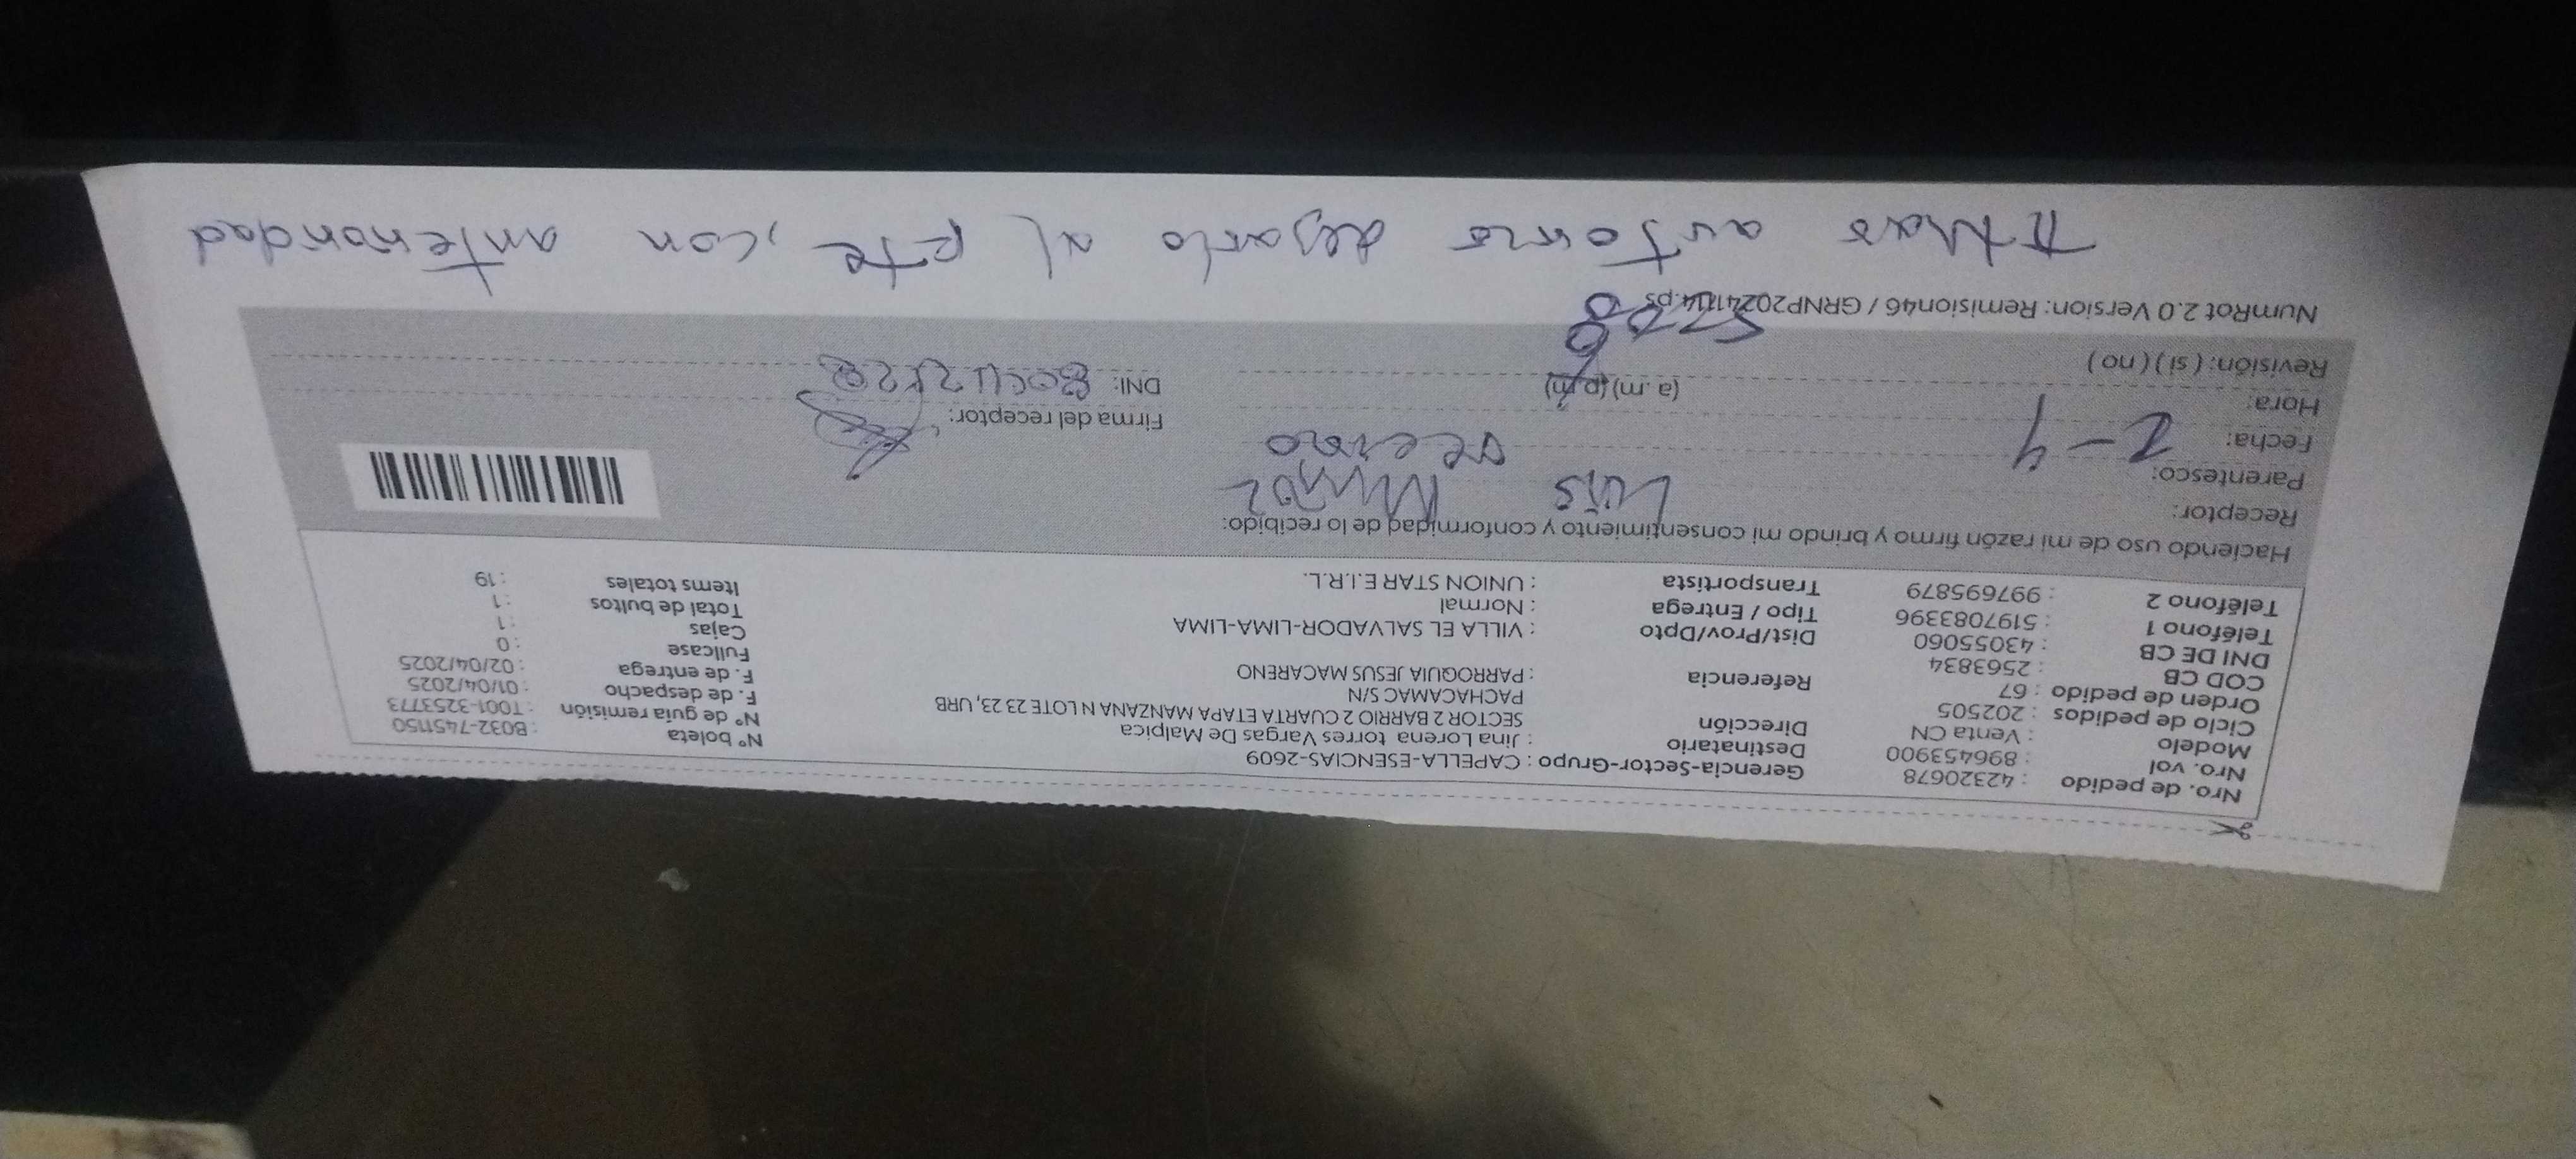 Nro. de pedido : 42320678
Nro. vol : 896453900
Modelo : Venta CN
Ciclo de pedidos : 202505
Orden de pedido : 67
COD CB : 2563834
DNI DE CB : 43055060
Teléfono 1 : 5197083396
Teléfono 2 : 997695879
Gerencia-Sector-Grupo : CAPELLA-ESENCIAS-2609
Destinatario : Jina Lorena torres Vargas De Malpica
Dirección SECTOR 2 BARRIO 2 CUARTA ETAPA MANZANA N LOTE 23 23, URB
PACHACAMAC S/N
Referencia : PARROQUIA JESUS MACARENO
Dist/Prov/Dpto : VILLA EL SALVADOR-LIMA-LIMA
Tipo / Entrega : Normal
Transportista : UNION STAR E.I.R.L.
N° boleta : B032-7451150
N° de guia remisión : T001-3253773
F. de despacho : 01/04/2025
F. de entrega : 02/04/2025
Fullcase : 0
Cajas : 1
Total de bultos : 1
Items totales : 19
Haciendo uso de mi razón firmo y brindo mi consentimiento y conformidad de lo recibido:
Receptor: Luis Muñoz
Parentesco: vecino
Fecha: 2-4
Hora: (a.m) (p.m)
Revisión: ( si ) ( no )
Firma del receptor:
DNI:
NumRot 2.0 Version: Remision46 / GRNP20241114.ps
autorizo dejarlo al fte, con anterioridad